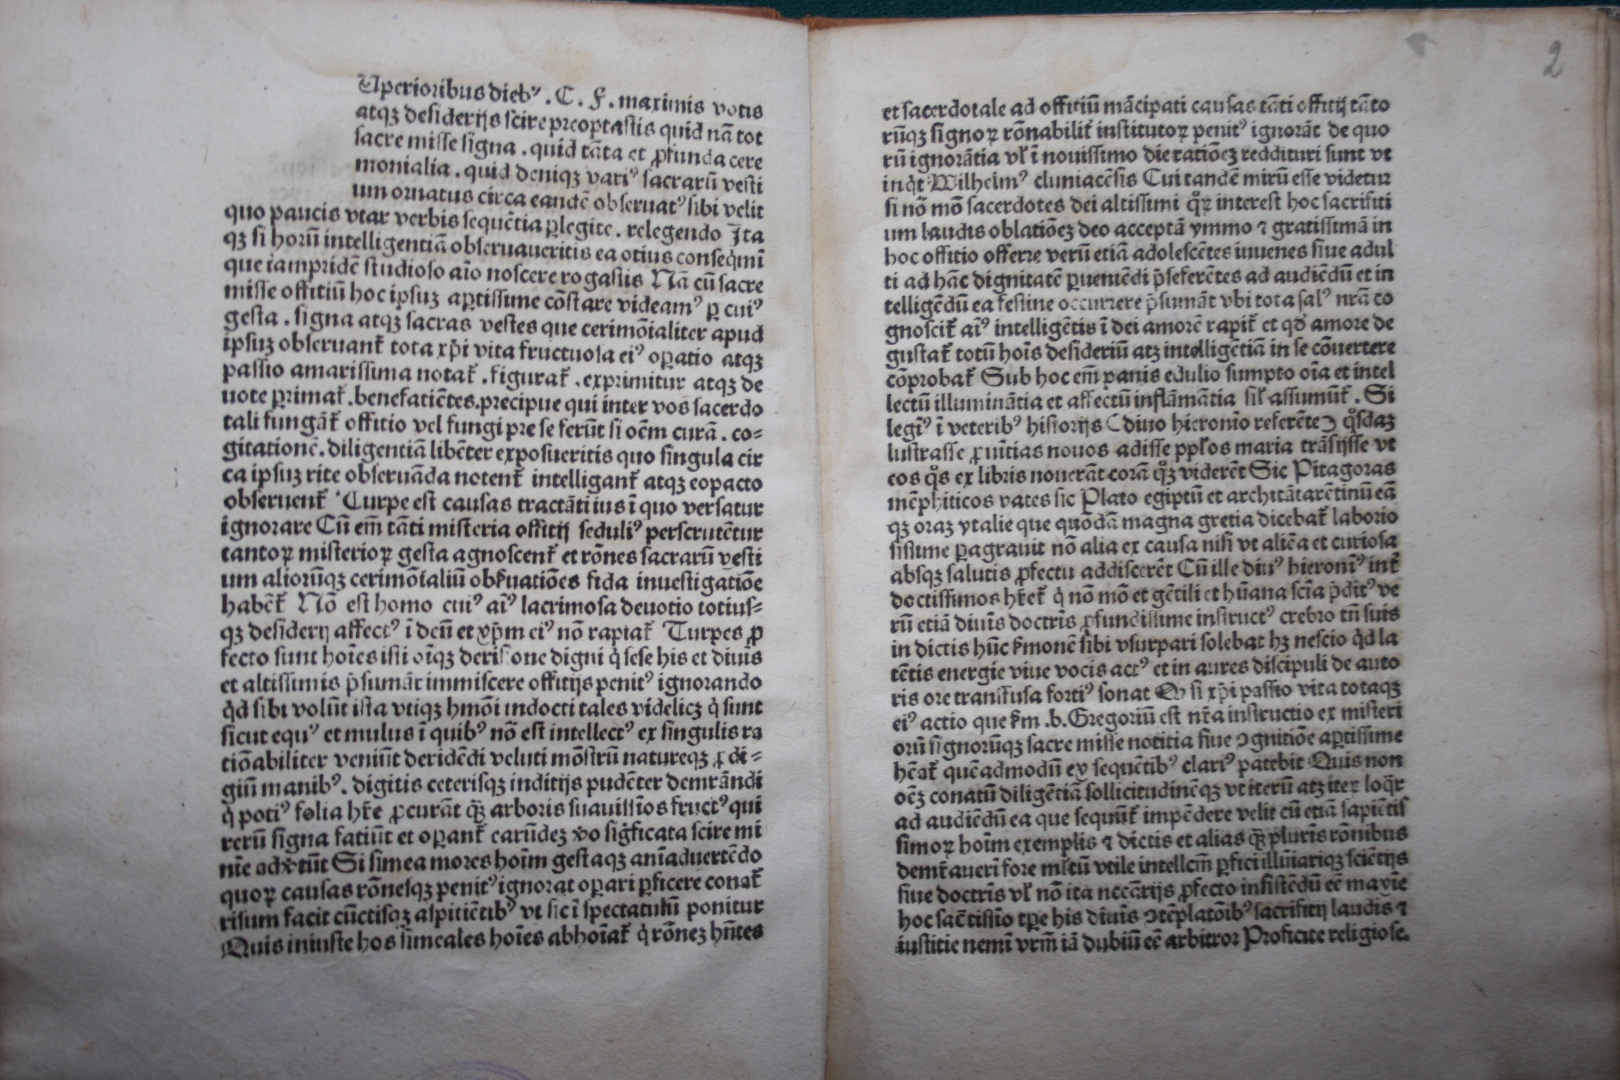 Uperioribus dieb⁹ . C . F . maximis votis
atqꝫ desiderijs scire preoptastis quid nã tot
sacre misse signa . quid tãta et ꝓfunda cere
monialia . quid deniqꝫ vari⁹ sacrarũ vesti
um ornatus circa eandẽ obseruat⁹ sibi velit
quo paucis vtar verbis sequẽtia ꝑlegite . relegendo Ita
qꝫ si horũ intelligentiã obseruaueritis ea otius conseq̃mĩ
que iampridẽ studioso aĩo noscere rogastis Nã cũ sacre
misse offitiũ hoc ipsuꝫ aꝑtissime cõstare videam⁹ ꝑ cui⁹
gesta . signa atqꝫ sacras vestes que cerimõialiter apud
ipsuꝫ obseruant᷑ tota xp̃i vita fructuosa ei⁹ oꝑatio atqꝫ
passio amarissima notat᷑ . figurat᷑ . exprimitur atqꝫ de
uote ꝑrimat᷑ . benefatiẽtes . precipue qui inter vos sacerdo
tali fungũt᷑ offitio vel fungi pre se ferũt si oẽm curã . co⸗
gitationẽ . diligentiã libẽter exposueritis quo singula cir
ca ipsuꝫ rite obseruãda notent᷑ intelligant᷑ atqꝫ eo pacto
obseruent᷑ Turpe est causas tractãti ius ĩ quo versatur
ignorare Cũ em̃ tãti misteria offitij seduli⁹ perscrutẽtur
tantoꝝ misterioꝝ gesta agnoscent᷑ et rõnes sacrarũ vesti
um aliorũqꝫ cerimõialiũ obẜuatiões fida inuestigatiõe
habẽt᷑ Nõ est homo cui⁹ ai⁹ lacrimosa deuotio totius⸗
qꝫ desiderij affect⁹ ĩ deũ et xp̃m ei⁹ nõ rapiat᷑ Turpes ꝓ
fecto sunt hoĩes isti oĩqꝫ derisione digni q̇ sese his et diuis
et altissimis p̃sumãt immiscere offitijs penit⁹ ignorando
q̇d sibi volũt ista vtiqꝫ hmõi indocti tales videlicꝫ q̇ sunt
sicut equ⁹ et mulus ĩ quib⁹ nõ est intellect⁹ ex singulis ra
tiõabiliter veniũt deridẽdi veluti mõstrũ natureqꝫ ꝓdi⸗
giũ manib⁹ . digitis ceterisqꝫ inditijs pudẽter demrãndi
q̇ poti⁹ folia hr̃e ꝓcurãt qꝫ̃ arboris suauissĩos fruct⁹ qui
rerũ signa fatiũt et oꝑant᷑ earũdeꝫ ṽo sig̃ficata scire mi
nĩe adṽtũt Si simea mores hoĩm gestaqꝫ anĩaduertẽdo
quoꝝ causas rõnesqꝫ penit⁹ ignorat oꝑari ꝑficere conat᷑
risum facit cũctisqꝫ aspitiẽtib⁹ vt sic ĩ spectatulũ ponitur
Quis iniuste hos simeales hoĩes abhoĩat᷑ q̇ rõneꝫ hñtes
et sacerdotale ad offitiũ mãcipati causas tãti offitij tãto
rũqꝫ signoꝝ rõnabilit᷑ institutoꝝ penit⁹ ignorãt de quo
rũ ignorãtia vl᷑ ĩ nouissimo die ratiõeꝫ reddituri sunt vt
inq̇t Wilhelm⁹ cluniacẽsis Cui tandẽ mirũ esse videtur
si nõ mõ sacerdotes dei altissimi q̇ꝝ interest hoc sacrifiti
um laudis oblatiõeꝫ deo acceptã ymmo ⁊ gratissimã in
hoc offitio offerre verũ etiã adolescẽtes iuuenes siue adul
ti ad hãc dignitatẽ ꝑueniẽdi p̃seferẽtes ad audiẽdũ et in
telligẽdũ ea festine occurrere p̃sumãt vbi tota sal⁹ nrã co
gnoscit᷑ ai⁹ intelligẽtis ĩ dei amorẽ rapit᷑ et qd̾ amore de
gustat᷑ totũ hoĩs desideriũ atꝫ intelligẽtiã in se cõuertere
cõprobat᷑ Sub hoc em̃ panis edulio sumpto oĩa et intel
lectũ illuminãtia et affectũ inflãmãtia sil᷑ assumũt᷑ . Si
legĩ⁹ ĩ veterib⁹ historijs (diuo hieronio referẽte) q̊sdaꝫ
lustrasse ꝓuĩtias nouos adisse pp̃los maria trãsijsse vt
eos q̊s ex libris nouerãt corã qꝫ viderẽt Sic Pitagoras
mẽphiticos vates sic Plato egiptũ et architãtarẽtinũ eã
qꝫ oraꝫ ytalie que quõdã magna gretia dicebat᷑ laborio
sissime ꝑagrauit nõ alia ex causa nisi vt aliẽa et curiosa
absqꝫ salutis ꝓfectu addiscerẽt Cũ ille diu⁹ hieroni⁹ int᷑
doctissimos hr̃et᷑ q̇ nõ mõ et gẽtili et hũana scĩa p̃dit⁹ ve
rũ etiã diuĩs doctrĩs ꝓfundissime instruct⁹ crebro tñ suis
in dictis hũc ẜmonẽ sibi vsurpari solebat hꝫ nescio q̇d la
tẽtis energie viue vocis act⁹ et in aures discipuli de auto
ris ore transfusa forti⁹ sonat Q si xp̃i passio vita totaqꝫ
ei⁹ actio que ẜm .b. Gregoriũ est nr̃a instructio ex misteri
orũ signorũqꝫ sacre misse notitia siue ꝯgnitiõe aꝑtissime
hẽat᷑ quẽadmodũ ex sequẽtib⁹ clari⁹ patebit Quis non
oẽꝫ conatũ diligẽtiã sollicitudinẽqꝫ vt iterũ atꝫ iteꝝ loq̃r
ad audiẽdũ ea que sequũt᷑ impẽdere velit cũ etiã sapiẽtis
simoꝝ hoĩm exemplis ⁊ dictis et alias qꝫ̃ plurĩs rõnibus
demr̃auerĩ fore ml̃tũ vtile intellcm̃ ꝑfici illũiariqꝫ sciẽtijs
siue doctrĩs vl᷑ nõ ita nccãrijs ꝓfecto insistẽdũ eẽ maxĩe
hoc sac̃tissĩo tꝑe his diuĩs ꝯtẽplatõib⁹ sacrifitij laudis ⁊
iustitie nemĩ vrm̃ iã dubiũ eẽ arbitror Proficite religiose.
2